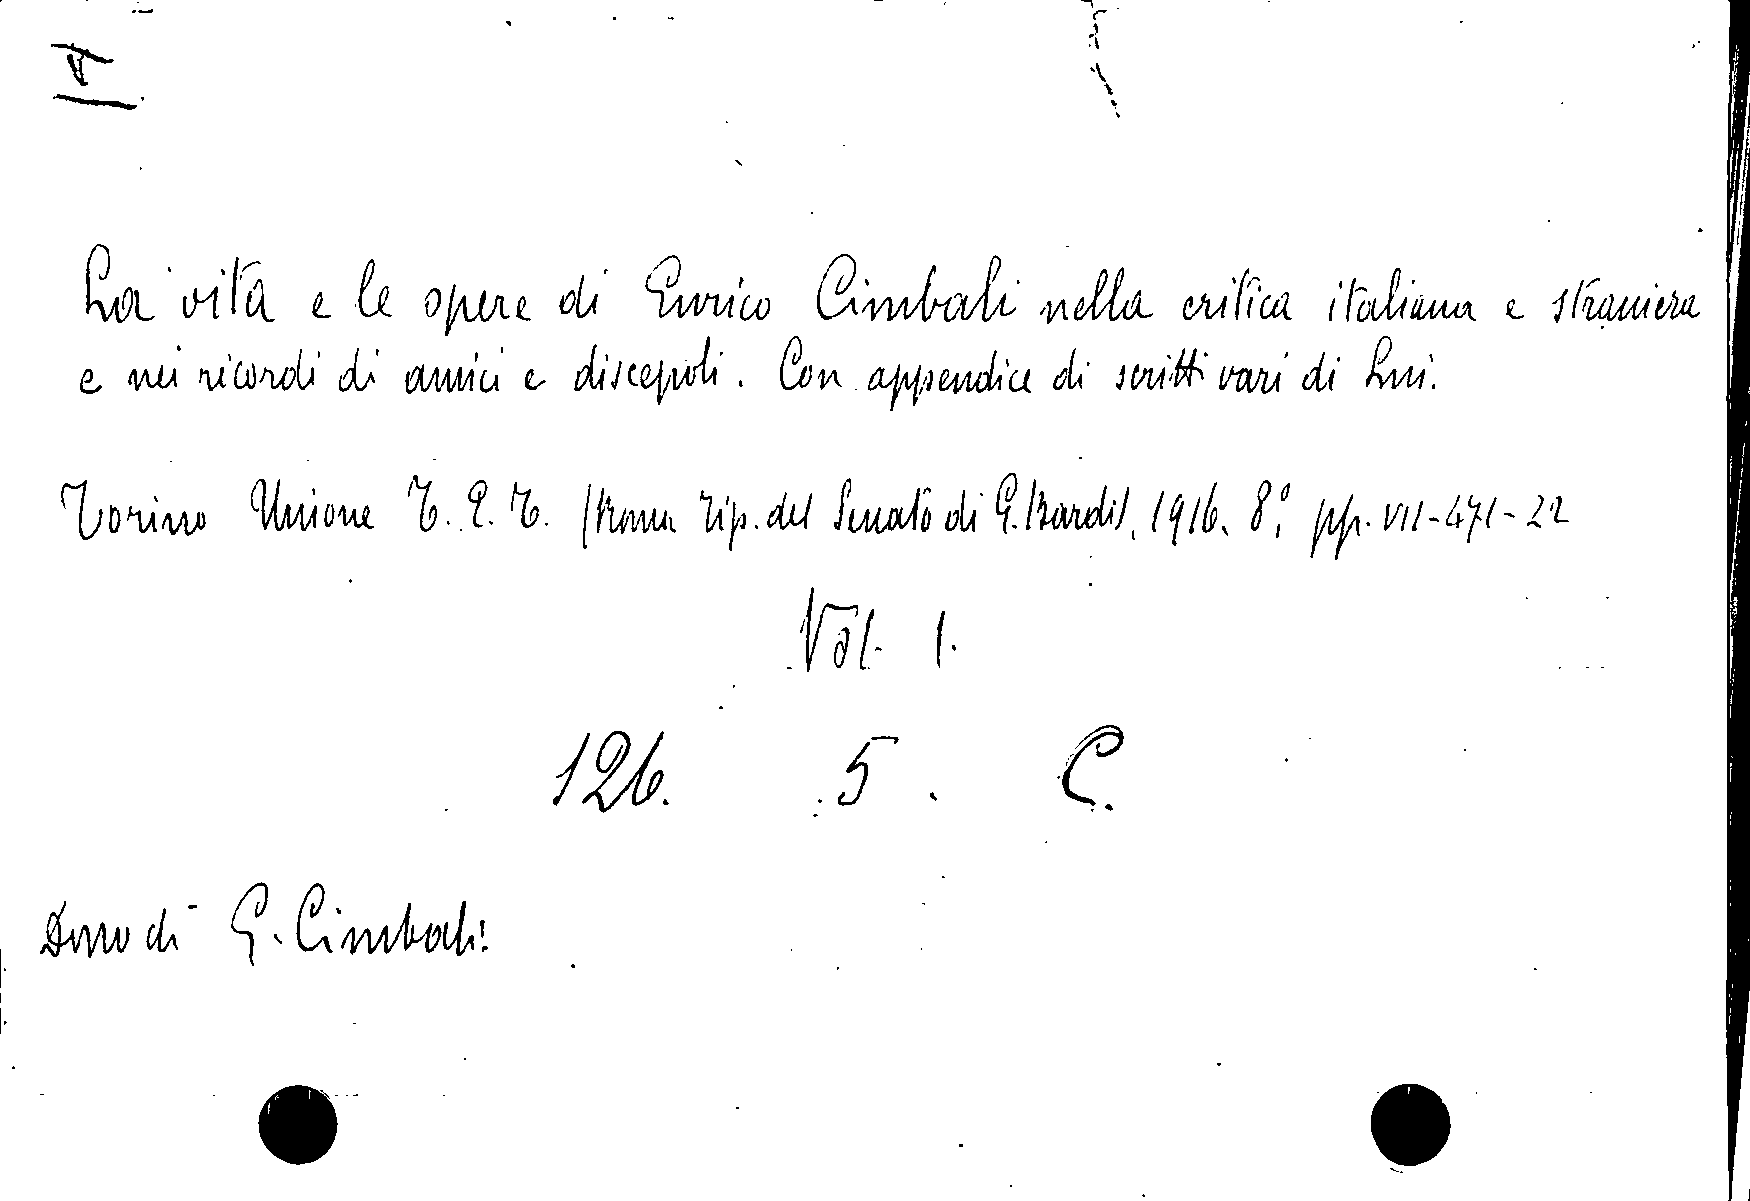 La vita e le opere di Enrico Cimbali nella critica italiana e straniera
e nei ricordi di amici e discepoli. Con appendice di scritti vari di Lui.
Torino Unione T. E. T. (Roma Tip. del Senato di G. Bardi), 1916. 8°. pp. VII-471-22
Vol. 1.
126. 5. C.
Dono di G. Cimbali.